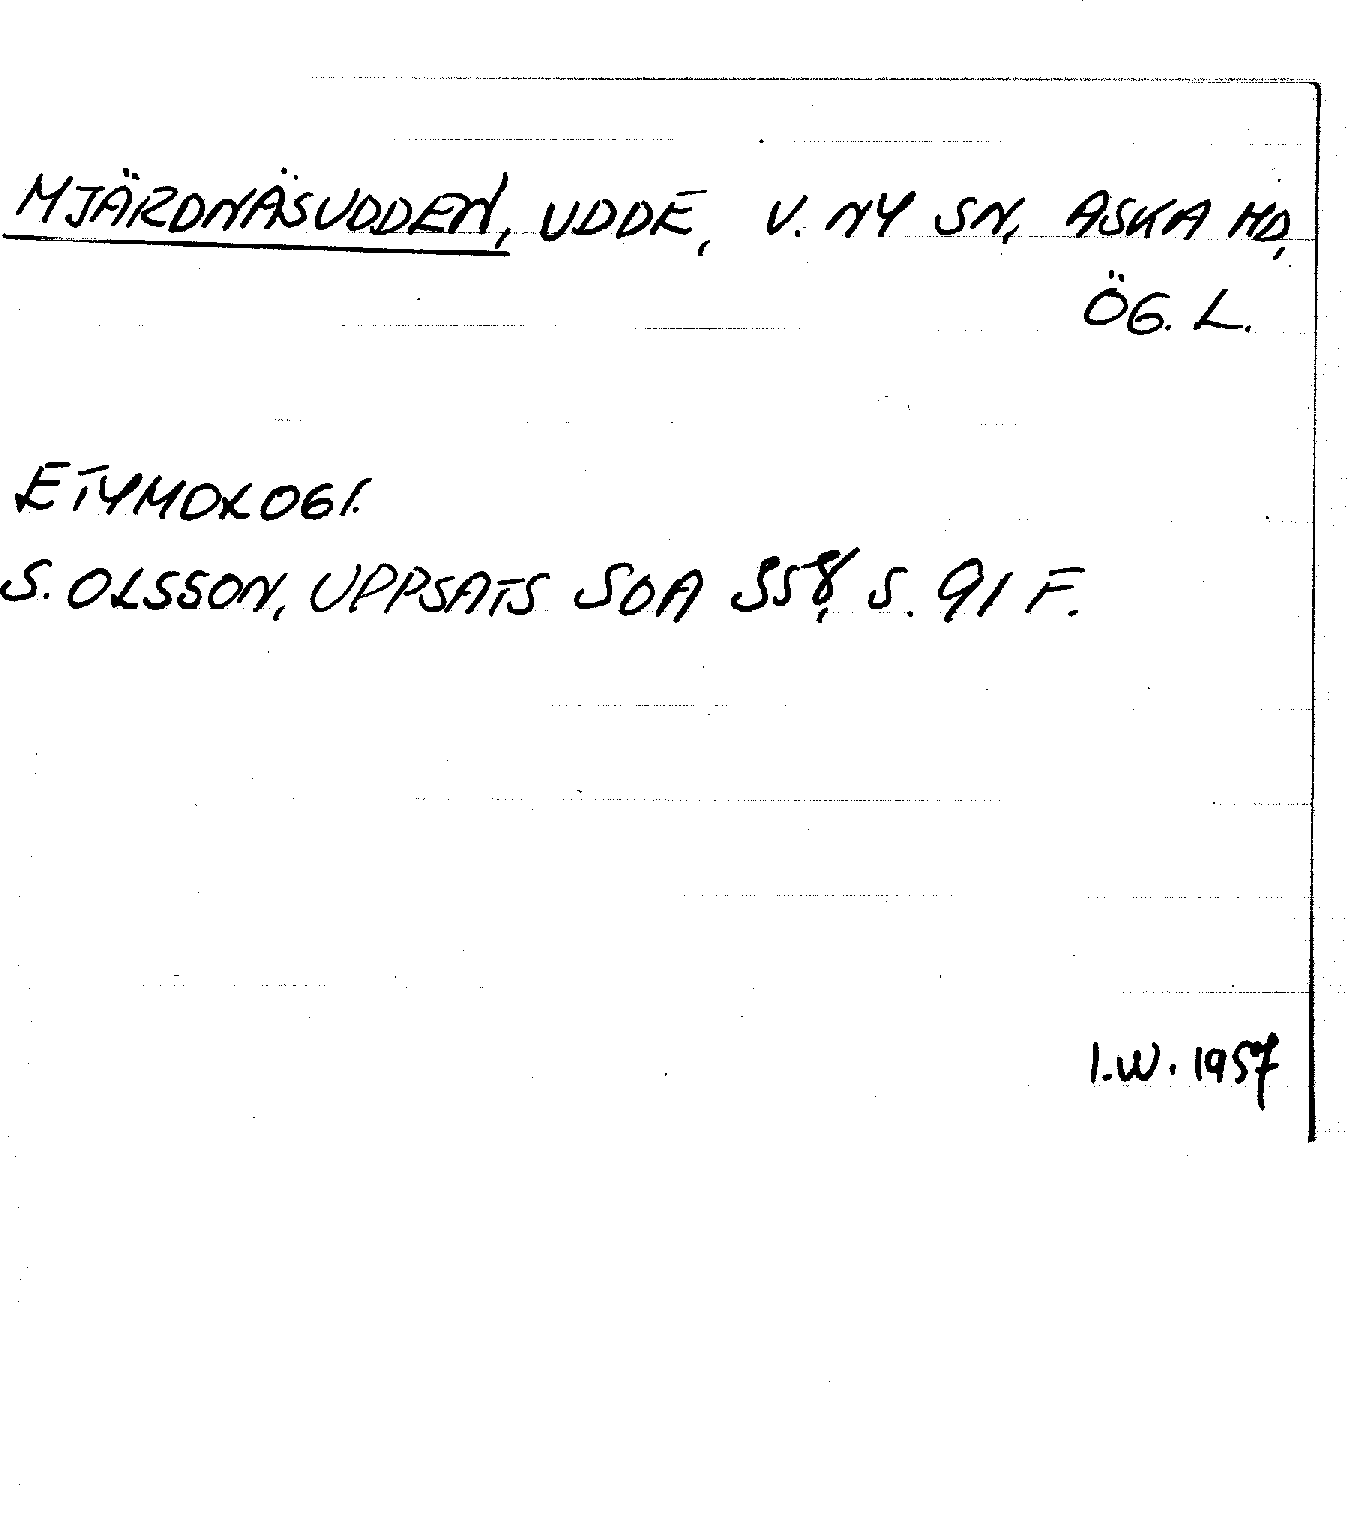 MJÄRDNÄSUDDEN, UDDE, V. NY SN, ASKA HD,
ÖG. L.
ETYMOLOGI.
S. OLSSON, UPPSATS SOA 558, S. 91 F.
I.W. 1957